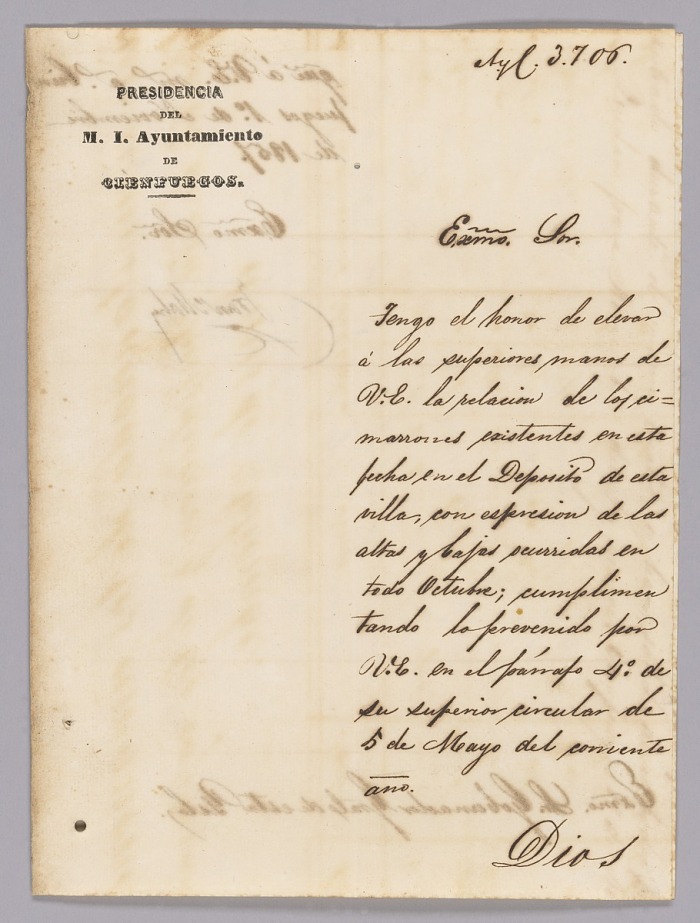 Nyl. 3.706.
PRESIDENCIA
DEL
M. I. Ayuntamiento
DE
CIENFUEGOS.
Exmo. Sor.
Tengo el honor de elevar
á las superiores manos de
V.E. la relacion de los ci=
marrones existentes en esta
fecha en el Deposito de esta
villa, con espresion de las
altas y bajas ocurridas en
todo Octubre; cumplimen
tando lo prevenido por
V.E. en el párrafo 4.º de
su superior circular de
5 de Mayo del corriente
año.
Dios